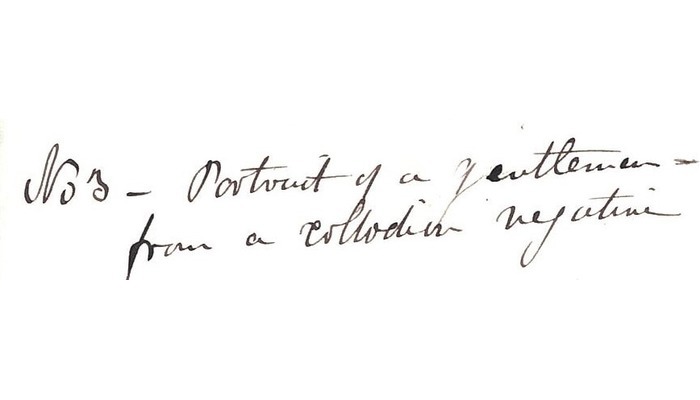 No 3 - Portrait of a gentleman -
from a collodion negative